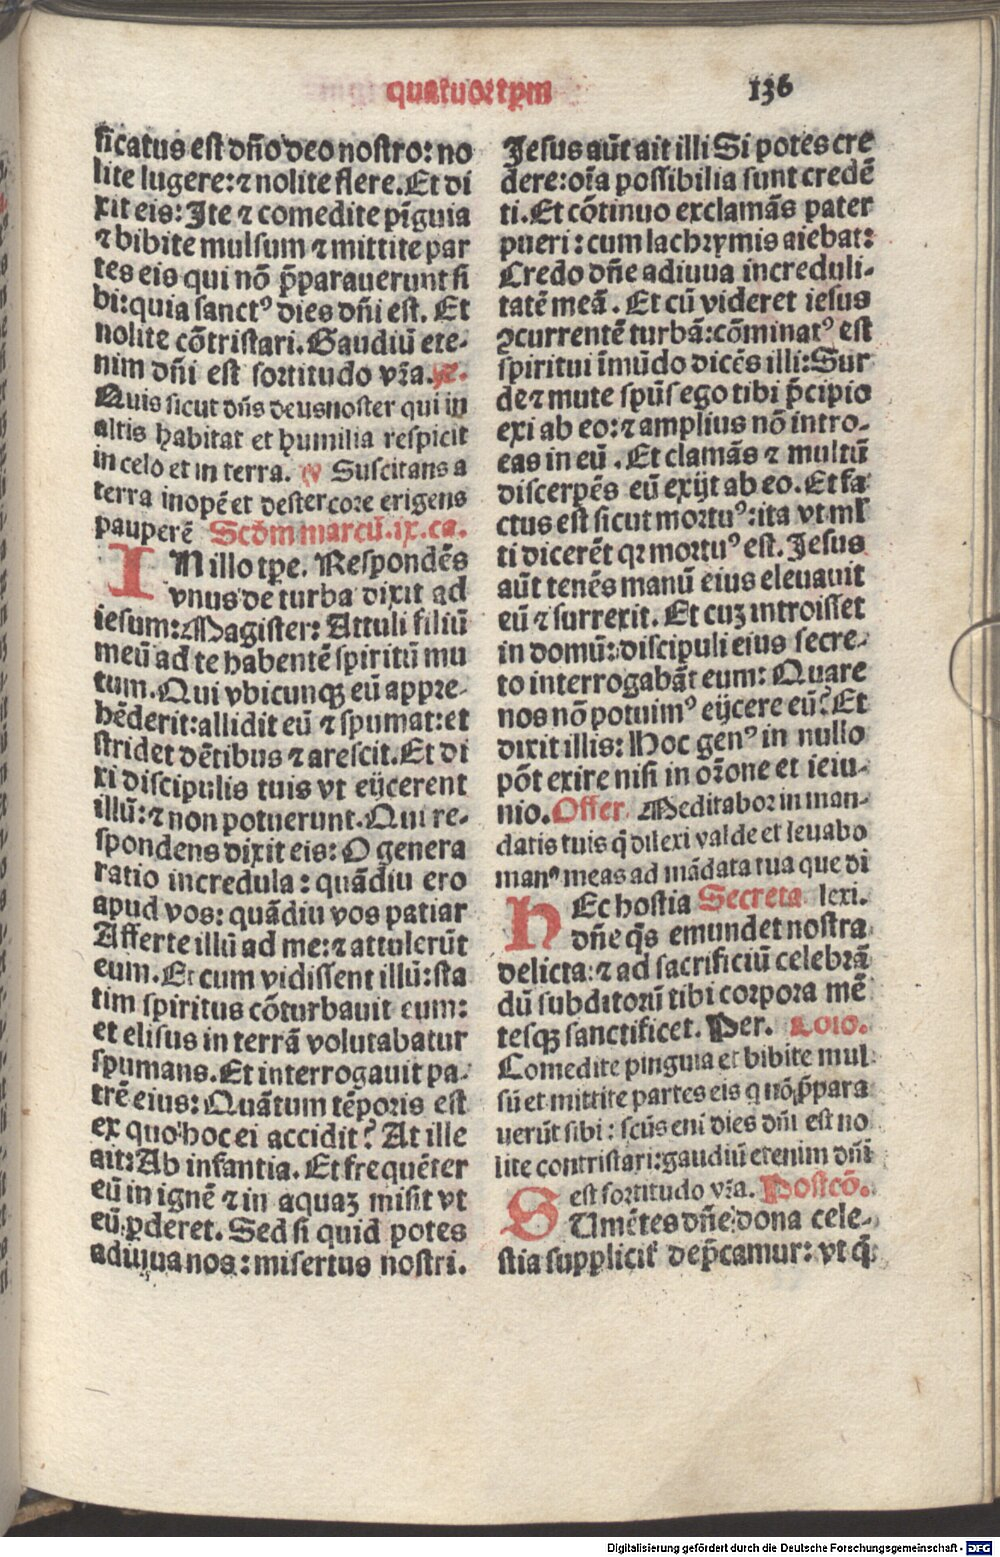 quatuortp̄m 136
ficatus est dño deo nostro: no
lite lugere: ⁊ nolite flere. Et di
xit eis: Ite ⁊ comedite pīguia
⁊ bibite mulsum ⁊ mittite par
tes eis qui nō p̄parauerunt si
bi: quia sanctꝰ dies dñi est. Et
nolite cōtristari. Gaudiū ete-
nim dñi est fortitudo vr̄a. ℟.
Quis sicut dñs deus noster qui in
altis habitat et humilia respicit
in celo et in terra. ℣ Suscitans a
terra inopē et de stercore erigens
pauperē Scd̄m marcū. ix. ca.
IN illo tp̄e. Respondēs
vnus de turba dixit ad
iesum: Magister: Attuli filiū
meū ad te habentē spiritū mu
tum. Qui vbicunqꝫ eū appre-
hēderit: allidit eū ⁊ spumat: et
stridet dētibus ⁊ arescit. Et di
xi discipulis tuis vt eijcerent
illū: ⁊ non potuerunt. Qui re-
spondens dixit eis: O genera
ratio incredula: quādiu ero
apud vos: quādiu vos patiar
Afferte illū ad me: ⁊ attulerūt
eum. Et cum vidissent illū: sta
tim spiritus cōturbauit eum:
et elisus in terrā volutabatur
spumans. Et interrogauit pa-
trē eius: Quātum tēporis est
ex quo hoc ei accidit? At ille
ait: Ab infantia. Et frequēter
eū in ignē ⁊ in aquaꝫ misit vt
eū ꝑderet. Sed si quid potes
adiuua nos: misertus nostri.
Jesus aūt ait illi Si potes cre
dere: oīa possibilia sunt credē
ti. Et cōtinuo exclamās pater
pueri: cum lachrymis aiebat:
Credo dñe adiuua increduli-
tatē meā. Et cū videret iesus
ꝯcurrentē turbā: cōminatꝰ est
spiritui īmūdo dicēs illi: Sur
de ⁊ mute spūs ego tibi p̄cipio
exi ab eo: ⁊ amplius nō intro-
eas in eū. Et clamās ⁊ multū
discerpēs eū exijt ab eo. Et fa
ctus est sicut mortuꝰ: ita vt ml̄
ti dicerēt qꝛ mortuꝰ est. Jesus
aūt tenēs manū eius eleuauit
eū ⁊ surrexit. Et cuꝫ introisset
in domū: discipuli eius secre-
to interrogabāt eum: Quare
nos nō potuimꝰ eijcere eū? Et
dixit illis: Hoc genꝰ in nullo
pōt exire nisi in or̄one et ieiu-
nio. Offer. Meditabor in man-
datis tuis q̄ dilexi valde et leuabo
manꝰ meas ad mādata tua que di
HEc hostia Secreta lexi.
dñe q̄s emundet nostra
delicta: ⁊ ad sacrificiū celebrā
dū subditorū tibi corpora mē
tesqꝫ sanctificet. Per. Cōīo.
Comedite pinguia et bibite mul
sū et mittite partes eis q̇ nō p̄para
uerūt sibi: scūs eni dies dñi est no
lite contristari: gaudiū etenim dñi
est fortitudo vr̄a. Postcō.
SUmētes dñe dona cele-
stia supplicit̄ dep̄camur: vt q̄
Digitalisierung gefördert durch die Deutsche Forschungsgemeinschaft - DFG